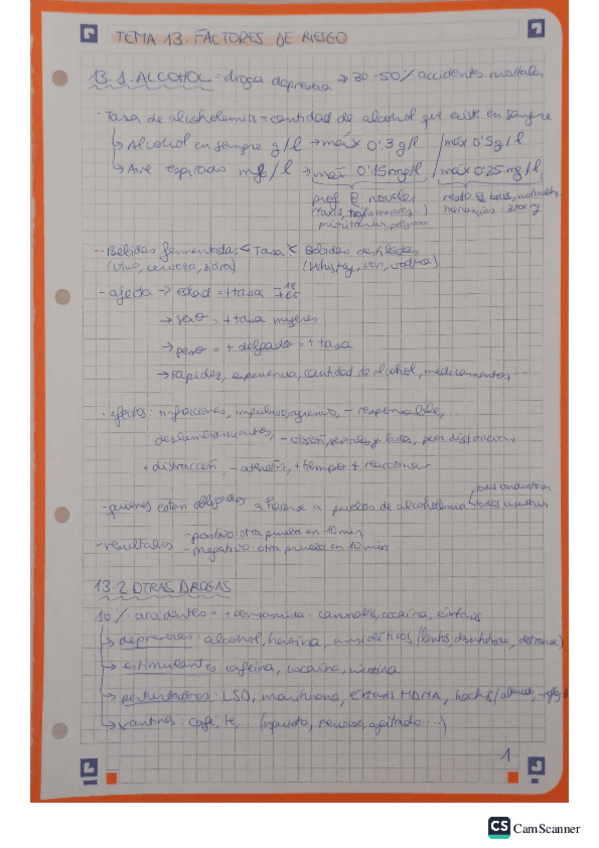 TEMA 13. FACTORES DE RIESGO
13.1. ALCOHOL = droga depresora → 30-50% accidentes mortales
· Tasa de alcoholemia = cantidad de alcohol que existe en sangre
↳ Alcohol en sangre g/l → máx 0'3 g/l / máx 0'5 g/l
↳ Aire espirado mg/l → máx 0'15 mg/l / máx 0'25 mg/l
prof noveles resto
(taxis,
mercancías
- Bebidas fermentadas < Tasa < Bebidas destiladas
(vino, cerveza, sidra) (Whisky, ron, vodka)
- afecta → edad = + tasa -18 +65
→ sexo = + tasa mujeres
→ peso = + delgado = + tasa
→ rapidez, experiencia, cantidad de alcohol, medicamentos, ...
- efectos: + infracciones, impulsivo, agresivo, - responsable, ...
deslumbramientos, - visión, señales y luces, peor distancias
+ distracción, - atención, + tiempo + reaccionar
- quienes están obligados a hacerse a pruebas de alcoholemia todos conductores
todos usuarios
- resultados - positivo: otra prueba en 10 min
- negativo: otra prueba en 10 min
13.2 OTRAS DROGAS
10% accidentes = + consumida: cannabis, cocaína, éxtasis
↳ depresoras: alcohol, heroína, ansiolíticos (lentos,
↳ estimulantes cafeína, cocaína, nicotina
↳ perturbadoras: LSD, marihuana, éxtasis MDMA, hachís
↳ xantinas: café, té, (inquieto, nervioso, agitado...)
1
CS CamScanner